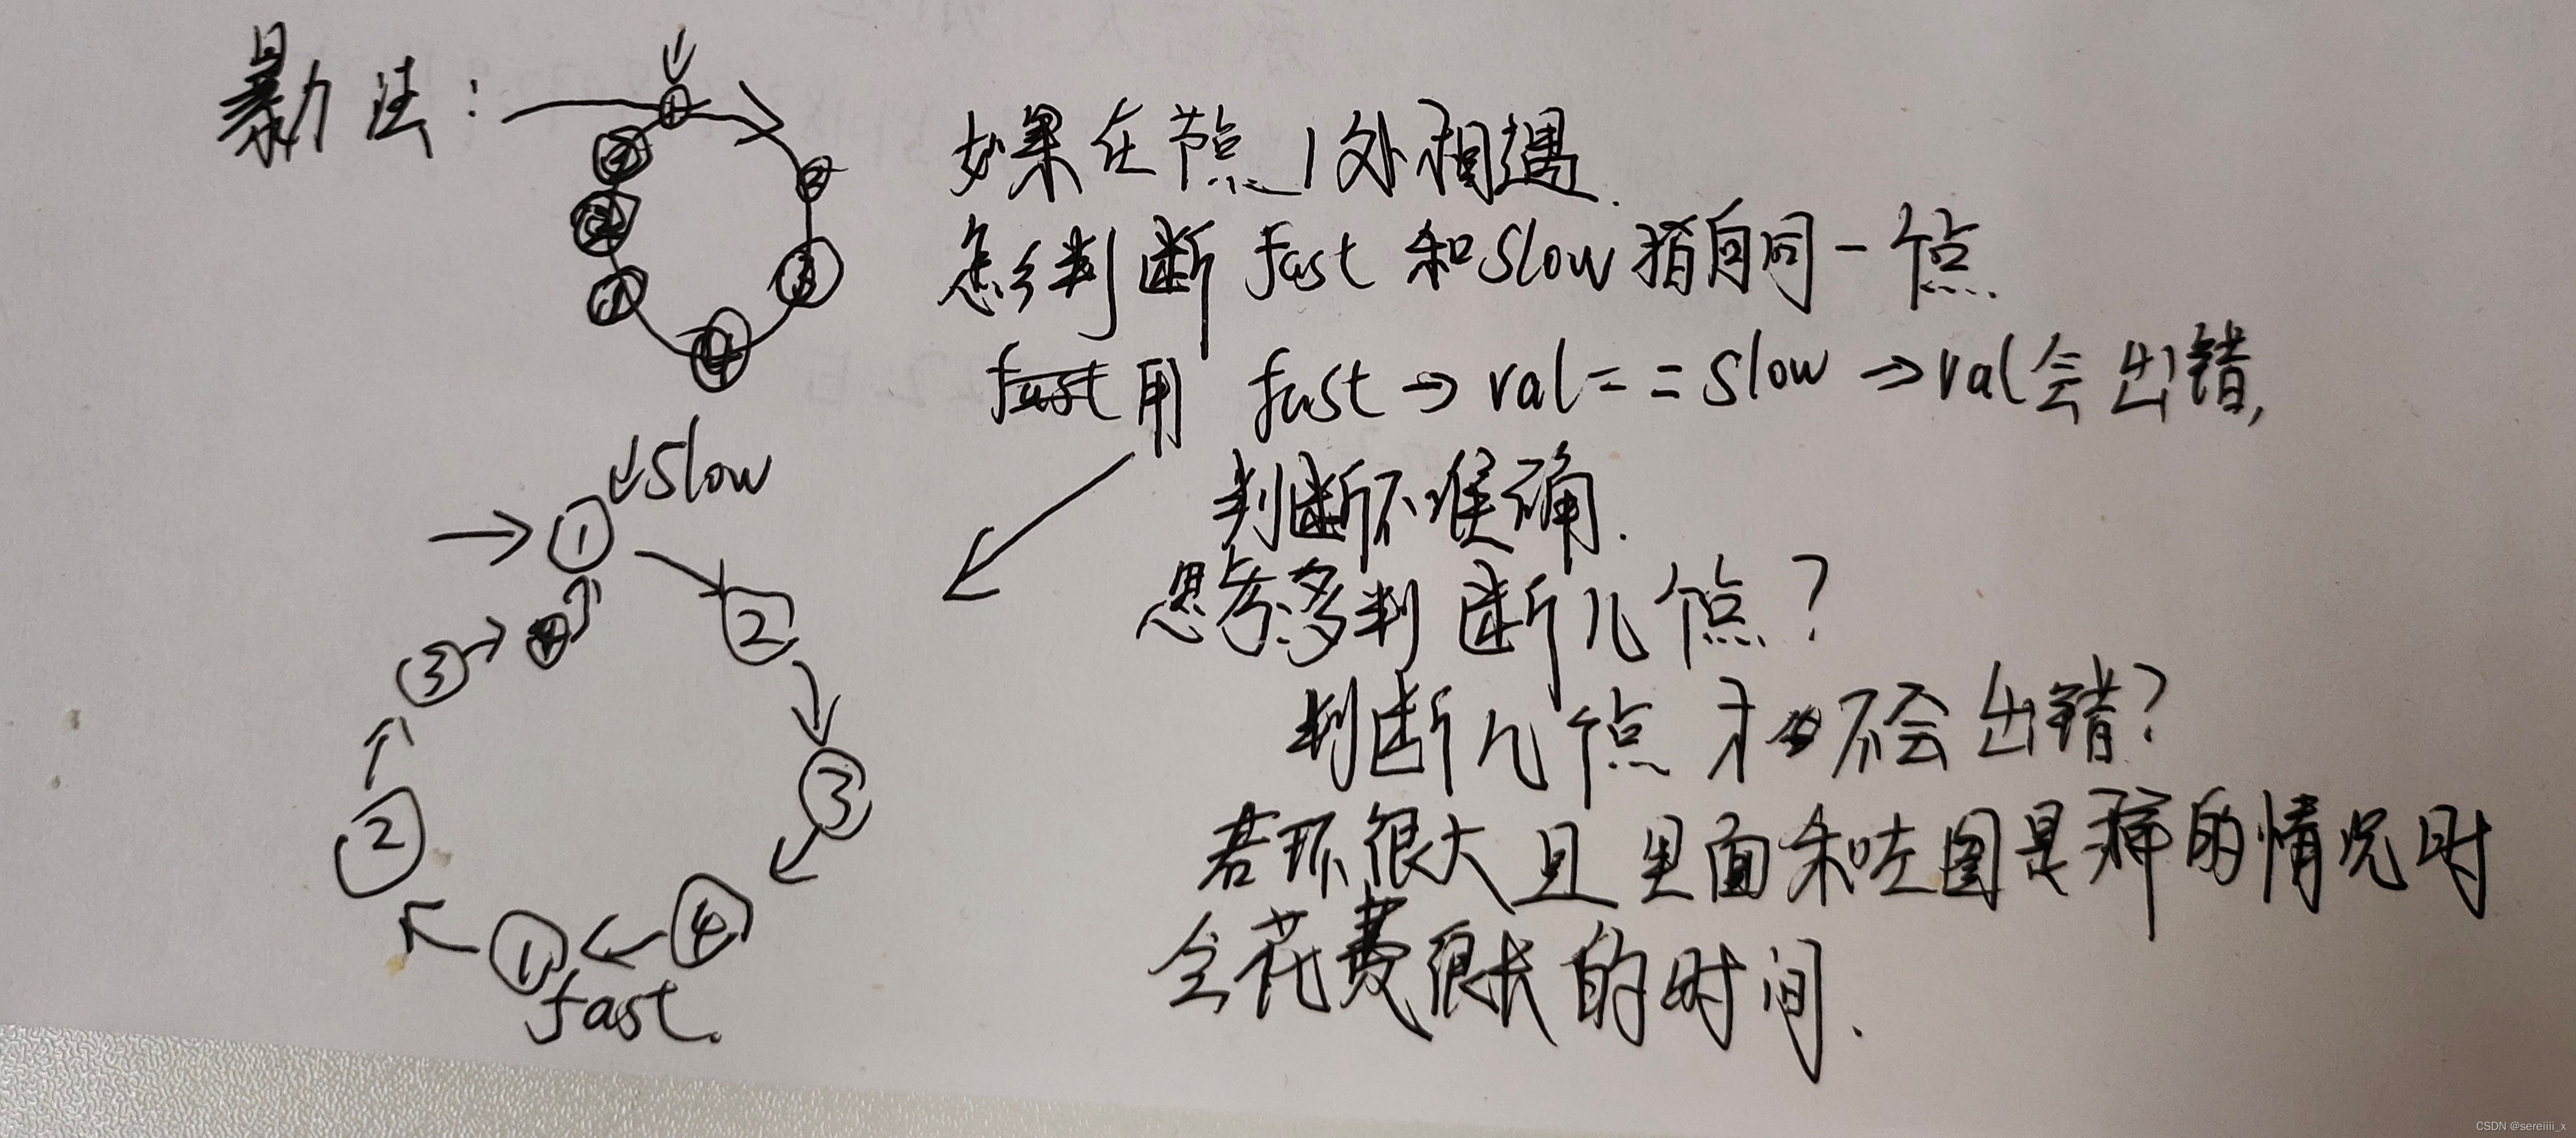 暴力法：
如果在节点1处相遇.
怎么判断 fast 和 slow 指向同一个点.
fast 用 fast → val == slow → val 会出错,
判断不准确.
思考：多判断几个点？
判断几个点才不会出错？
若环很大且里面和左图是一样的情况时
会花费很长的时间.
↓slow
→ ① 
③ → ④
②
②
③
① ← ④
fast.
CSDN @sereiiii_x